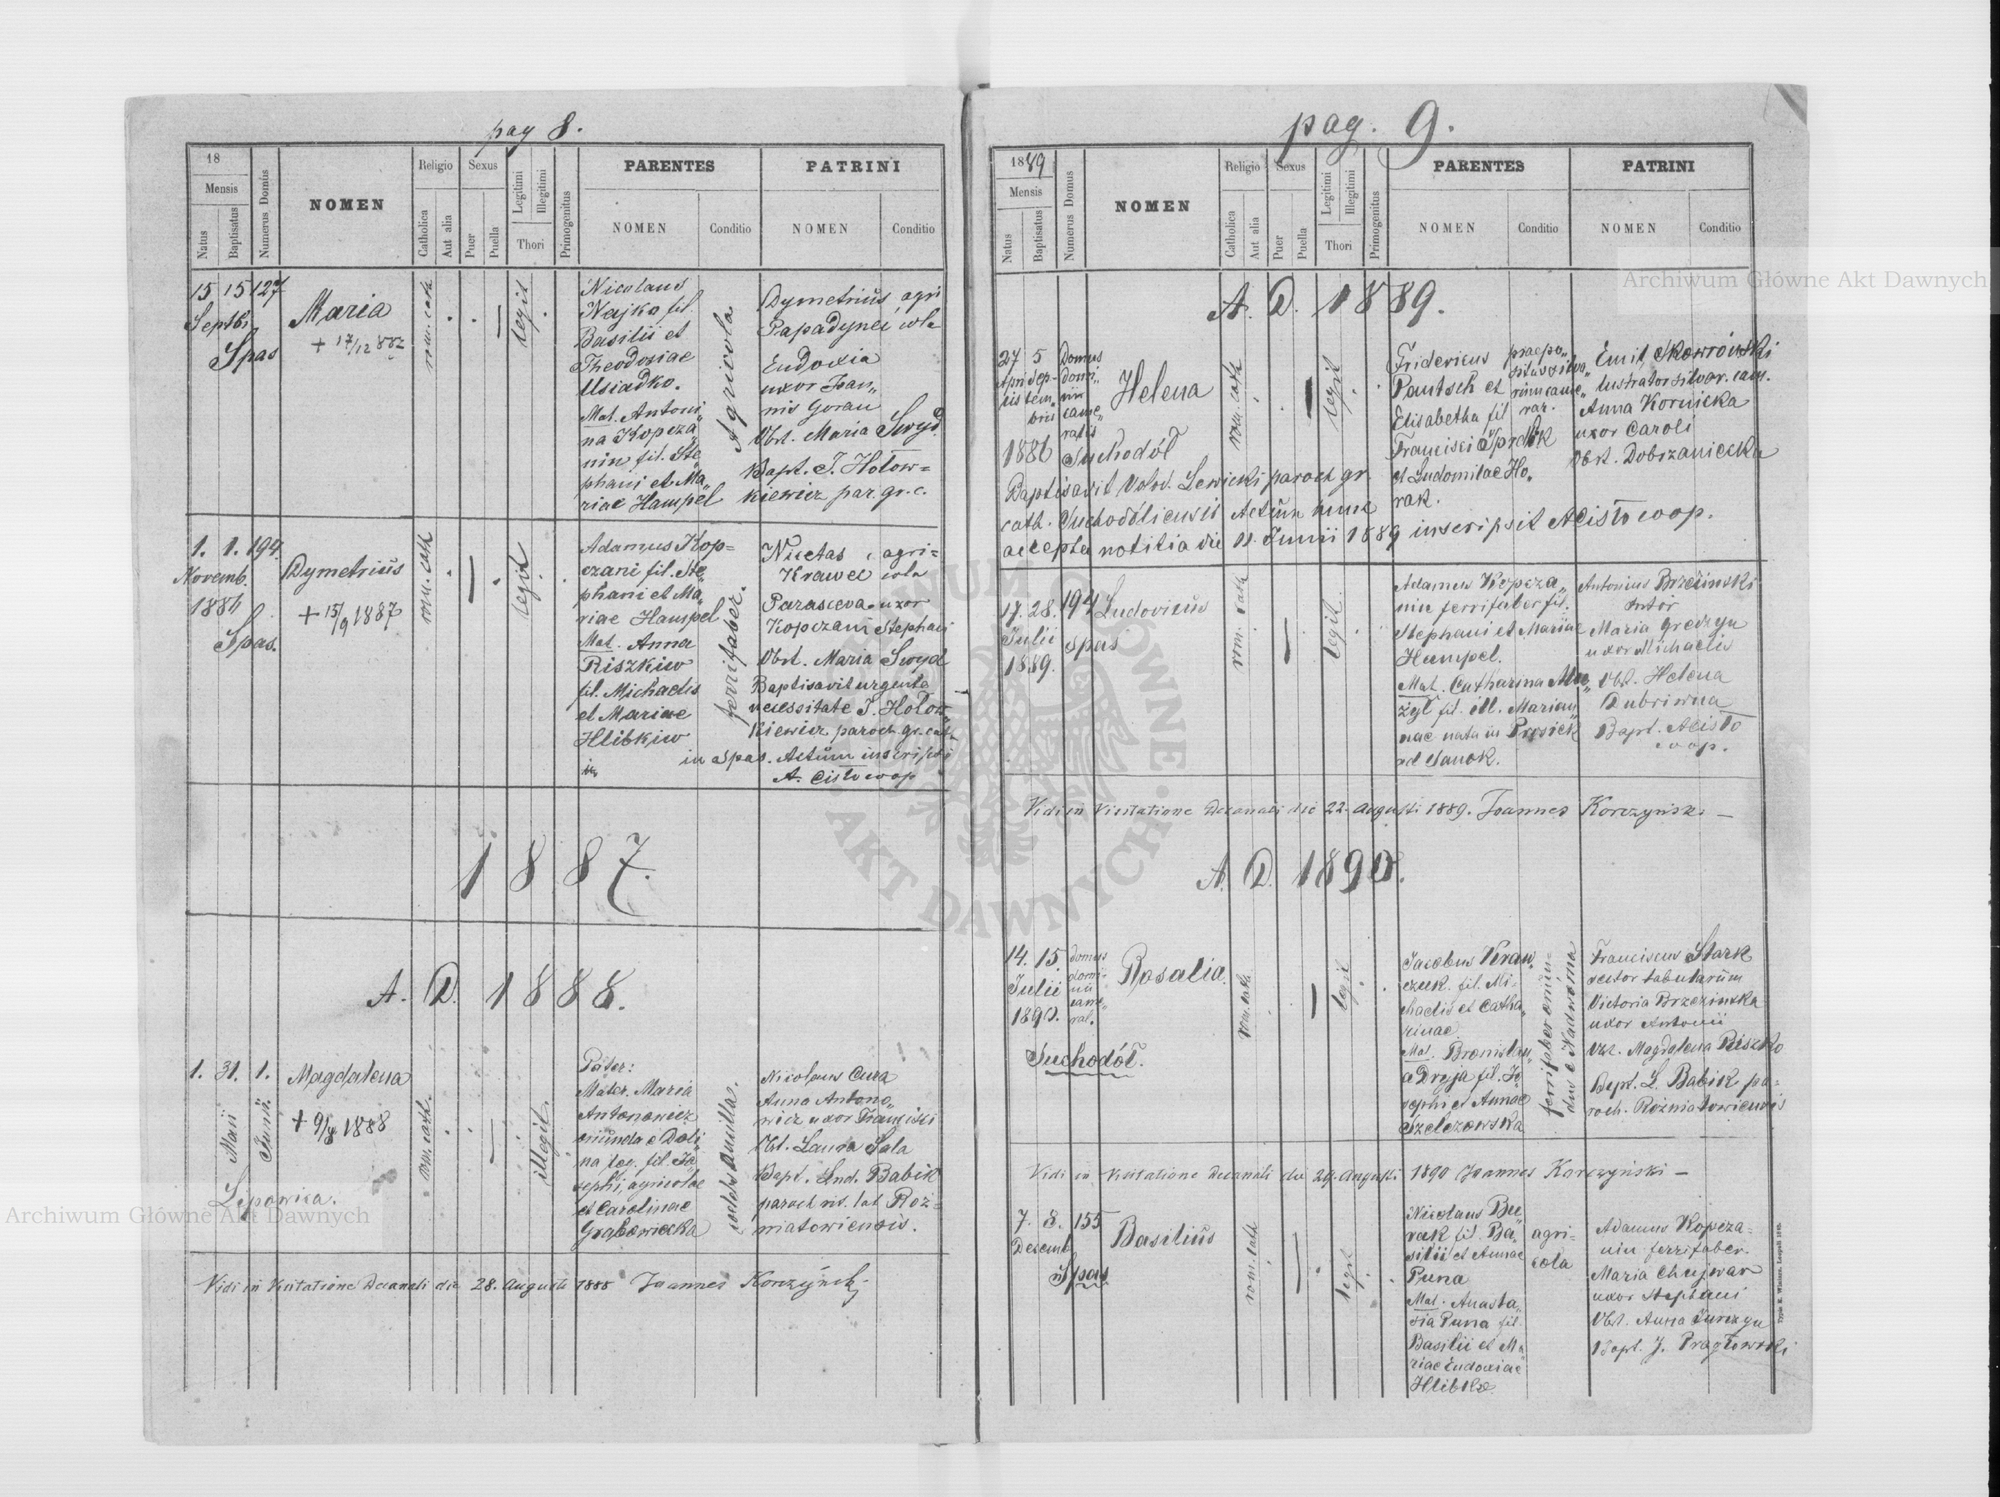 pag 8.
18
Mensis
Natus
Baptisatus
Numerus Domus
NOMEN
Religio
Catholica
Aut alia
Sexus
Puer
Puella
Legitimi
Illegitimi
Thori
Primogenitus
PARENTES
NOMEN
Conditio
PATRINI
NOMEN
Conditio
15 15 127
Septbr
Spas
Maria
+ 17/12 887
rom. cath
legit
Nicolaus
Wajko fil.
Basilii et
Theodosiae
Usiadko.
Mat. Antoni„
na Kopcza„
nin fil. Ste„
phani et Ma„
riae Hampel
Agricola
Dymetriŭs agri
Papadynci cola
Eudoxia
uxor Joan„
nis Goran
Obst. Maria Swyd
Bapt. J. Hołow=
kiewicz par. gr. c.
1. 1. 194.
Novemb.
1886
Spas.
Dymetriŭs
+ 15/9 1887
rom. cath
legit
Adamus Kop=
czani fil. Ste„
phani et Ma„
riae Hampel
Mat. Anna
Riszkiw
fil. Michaelis
et Mariae
Hlibkiw
ferrifaber.
Nicetas agri=
Krawec cola
Parasceva uxor
Kopczani Stephani
Obst. Maria Swyd
Baptisavit urgente
necessitate J. Hołow„
kiewicz paroch. gr. cath
in Spas. Actŭm inscripsi
A. Cisło coop
1887.
A. D. 1888.
1. 31. 1.
Maii
Junii
Lipowica.
Magdalena
+ 9/8 1888
rom. cath.
illegit.
Pater:
Mater. Maria
Antonowicz
oriunda e Doli
na fil. Jo„
sephi, agricolae
et Carolinae
Grabowiecka
ancilla.
Nicolaus Cura
Anna Antono„
wicz uxor Francisci
Obst. Laura Sala
Bapt. Lud. Babik
paroch rit. lat Roż=
niatowiensis.
Vidi in Visitatione Decanali die 28. Augusti 1888 Joannes Korczyński
pag. 9.
1889
Mensis
Natus
Baptisatus
Numerus Domus
NOMEN
Religio
Catholica
Aut alia
Sexus
Puer
Puella
Legitimi
Illegitimi
Thori
Primogenitus
PARENTES
NOMEN
Conditio
PATRINI
NOMEN
Conditio
A. D. 1889.
27 5 Domus
Apri Sep- domi„
lis tem„ nii
bris came„
ralis
1886 Suchodół
Helena
rom. cath
legit
Fridericus praepo„
Pautsch et situs silva„
Elisabetha fil rum came„
rar.
Francisci Sprdlik
et Ludomilae Ho„
rak.
Emil Skowroński
lustrator silvar. cam.
Anna Kornicka
uxor Caroli
Obst. Dobrzaniecka
Baptisavit Lewicki paroch gr.
cath. Suchodóliensis Actŭm hunc
accepta notitia die 11. Junii 1889 inscripsit A Cisło coop.
17. 28. 194
Julii Spas
1889.
Ludovicŭs
rom. cath
legit.
Adamus Kopcza„
nin ferrifaber fil.
Stephani et Mariae
Hampel.
Mat. Catharina Mu„
żył fil. ill. Marian„
nae nata in Prosiek
ad Sanok.
Antonius Brzezinski
Maria Gredzyn
uxor Michaelis
Obst. Helena
Dubriwna
Bapt. A Cisło
coop.
Vidi in Visitatione Decanali die 22. Augusti 1889. Joannes Korczyński —
A. D. 1890.
14. 15 domus
Julii domi-
nii
1890. came
ral.
Suchodół.
Rosalia.
rom. cath.
legit
Jacobus Kraw„
czuk. fil. Mi-
chaelis et Catha„
rinae
Mat. Bronislaw„
a Dryja fil. Jo„
sephi et Annae
Szelczowska
ferrifaber oriun-
dus e Nadwórna
Franciscus Stark
sector tabularŭm
Victoria Brzezinska
uxor Antonii
Obst. Magdalena Riszko
Bapt. L. Babik pa-
roch. Rożniatowiensis
Vidi in Visitatione Decanali die 29. Augusti 1890 Joannes Korczyński —
7. 8. 155
Decemb.
Spas
Basiliŭs
rom. cath
legit
Nicolaus Bu„
rak fil. Ba„
silii et Annae
Puna
Mat. Anasta„
sia Puna fil.
Basilii et Ma
riae Eudoxiae
Hlibka
agri-
cola
Adamus Kopcza-
nin ferrifaber.
Maria Chujwan
uxor Stephani
Obst. Anna Jurczyn
Bapt. J. Prągłowski
Typis E. Winiarz. Leopoli
Archiwum Główne Akt Dawnych
Archiwum Główne Akt Dawnych
ARCHIWUM GŁÓWNE AKT DAWNYCH